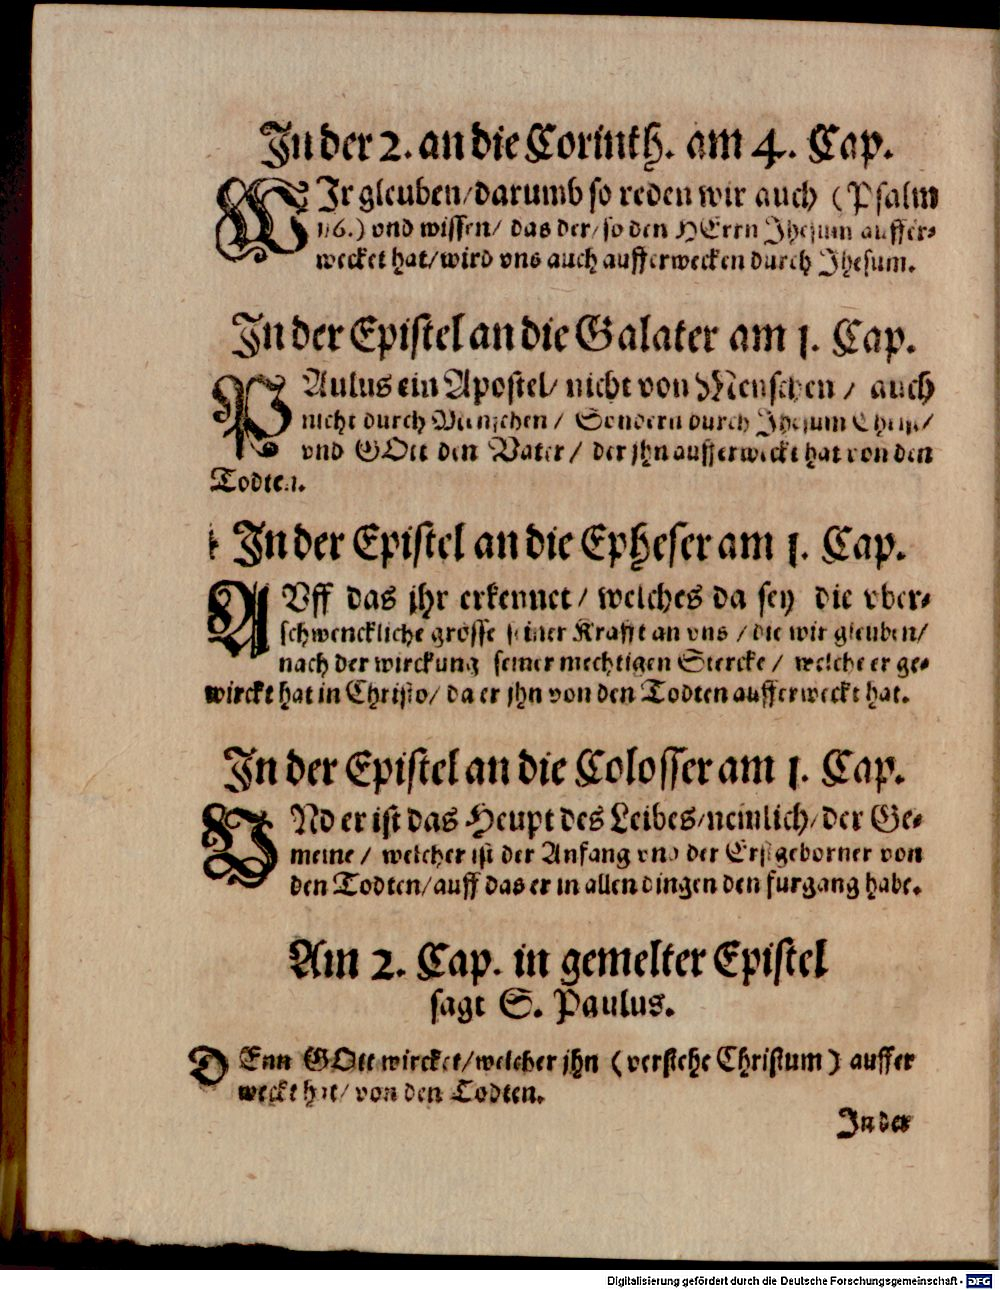 In der 2. an die Corinth. am 4. Cap.
WIr gleuben/darumb so reden wir auch (Psalm
116.) vnd wissen/ das der/so den HErrn Jhesum auffer-
wecket hat/wird vns auch aufferwecken durch Jhesum.
In der Epistel an die Galater am 1. Cap.
PAulus ein Apostel/ nicht von Menschen / auch
nicht durch Menschen / Sondern durch Jhesum Christ/
vnd GOtt den Vater / der jhn aufferweckt hat von den
Todten.
In der Epistel an die Epheser am 1. Cap.
AVff das jhr erkennet / welches da sey die vber-
schwenckliche grösse seiner Krafft an vns / die wir gleuben/
nach der wirckung seiner mechtigen Stercke / welche er ge-
wirckt hat in Christo/ da er jhn von den Todten aufferweckt hat.
In der Epistel an die Colosser am 1. Cap.
VNd er ist das Heupt des Leibes/nemlich/der Ge-
meine / welcher ist der Anfang vnd der Erstgeborner von
den Todten/auff das er in allen dingen den furgang habe.
Am 2. Cap. in gemelter Epistel
sagt S. Paulus.
DEnn GOtt wircket/welcher jhn (verstehe Christum) auffer
weckt hat/ von den Todten.
In der
Digitalisierung gefördert durch die Deutsche Forschungsgemeinschaft - DFG